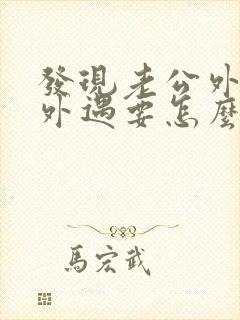 發現老公外
外遇要怎麼
馬宏武